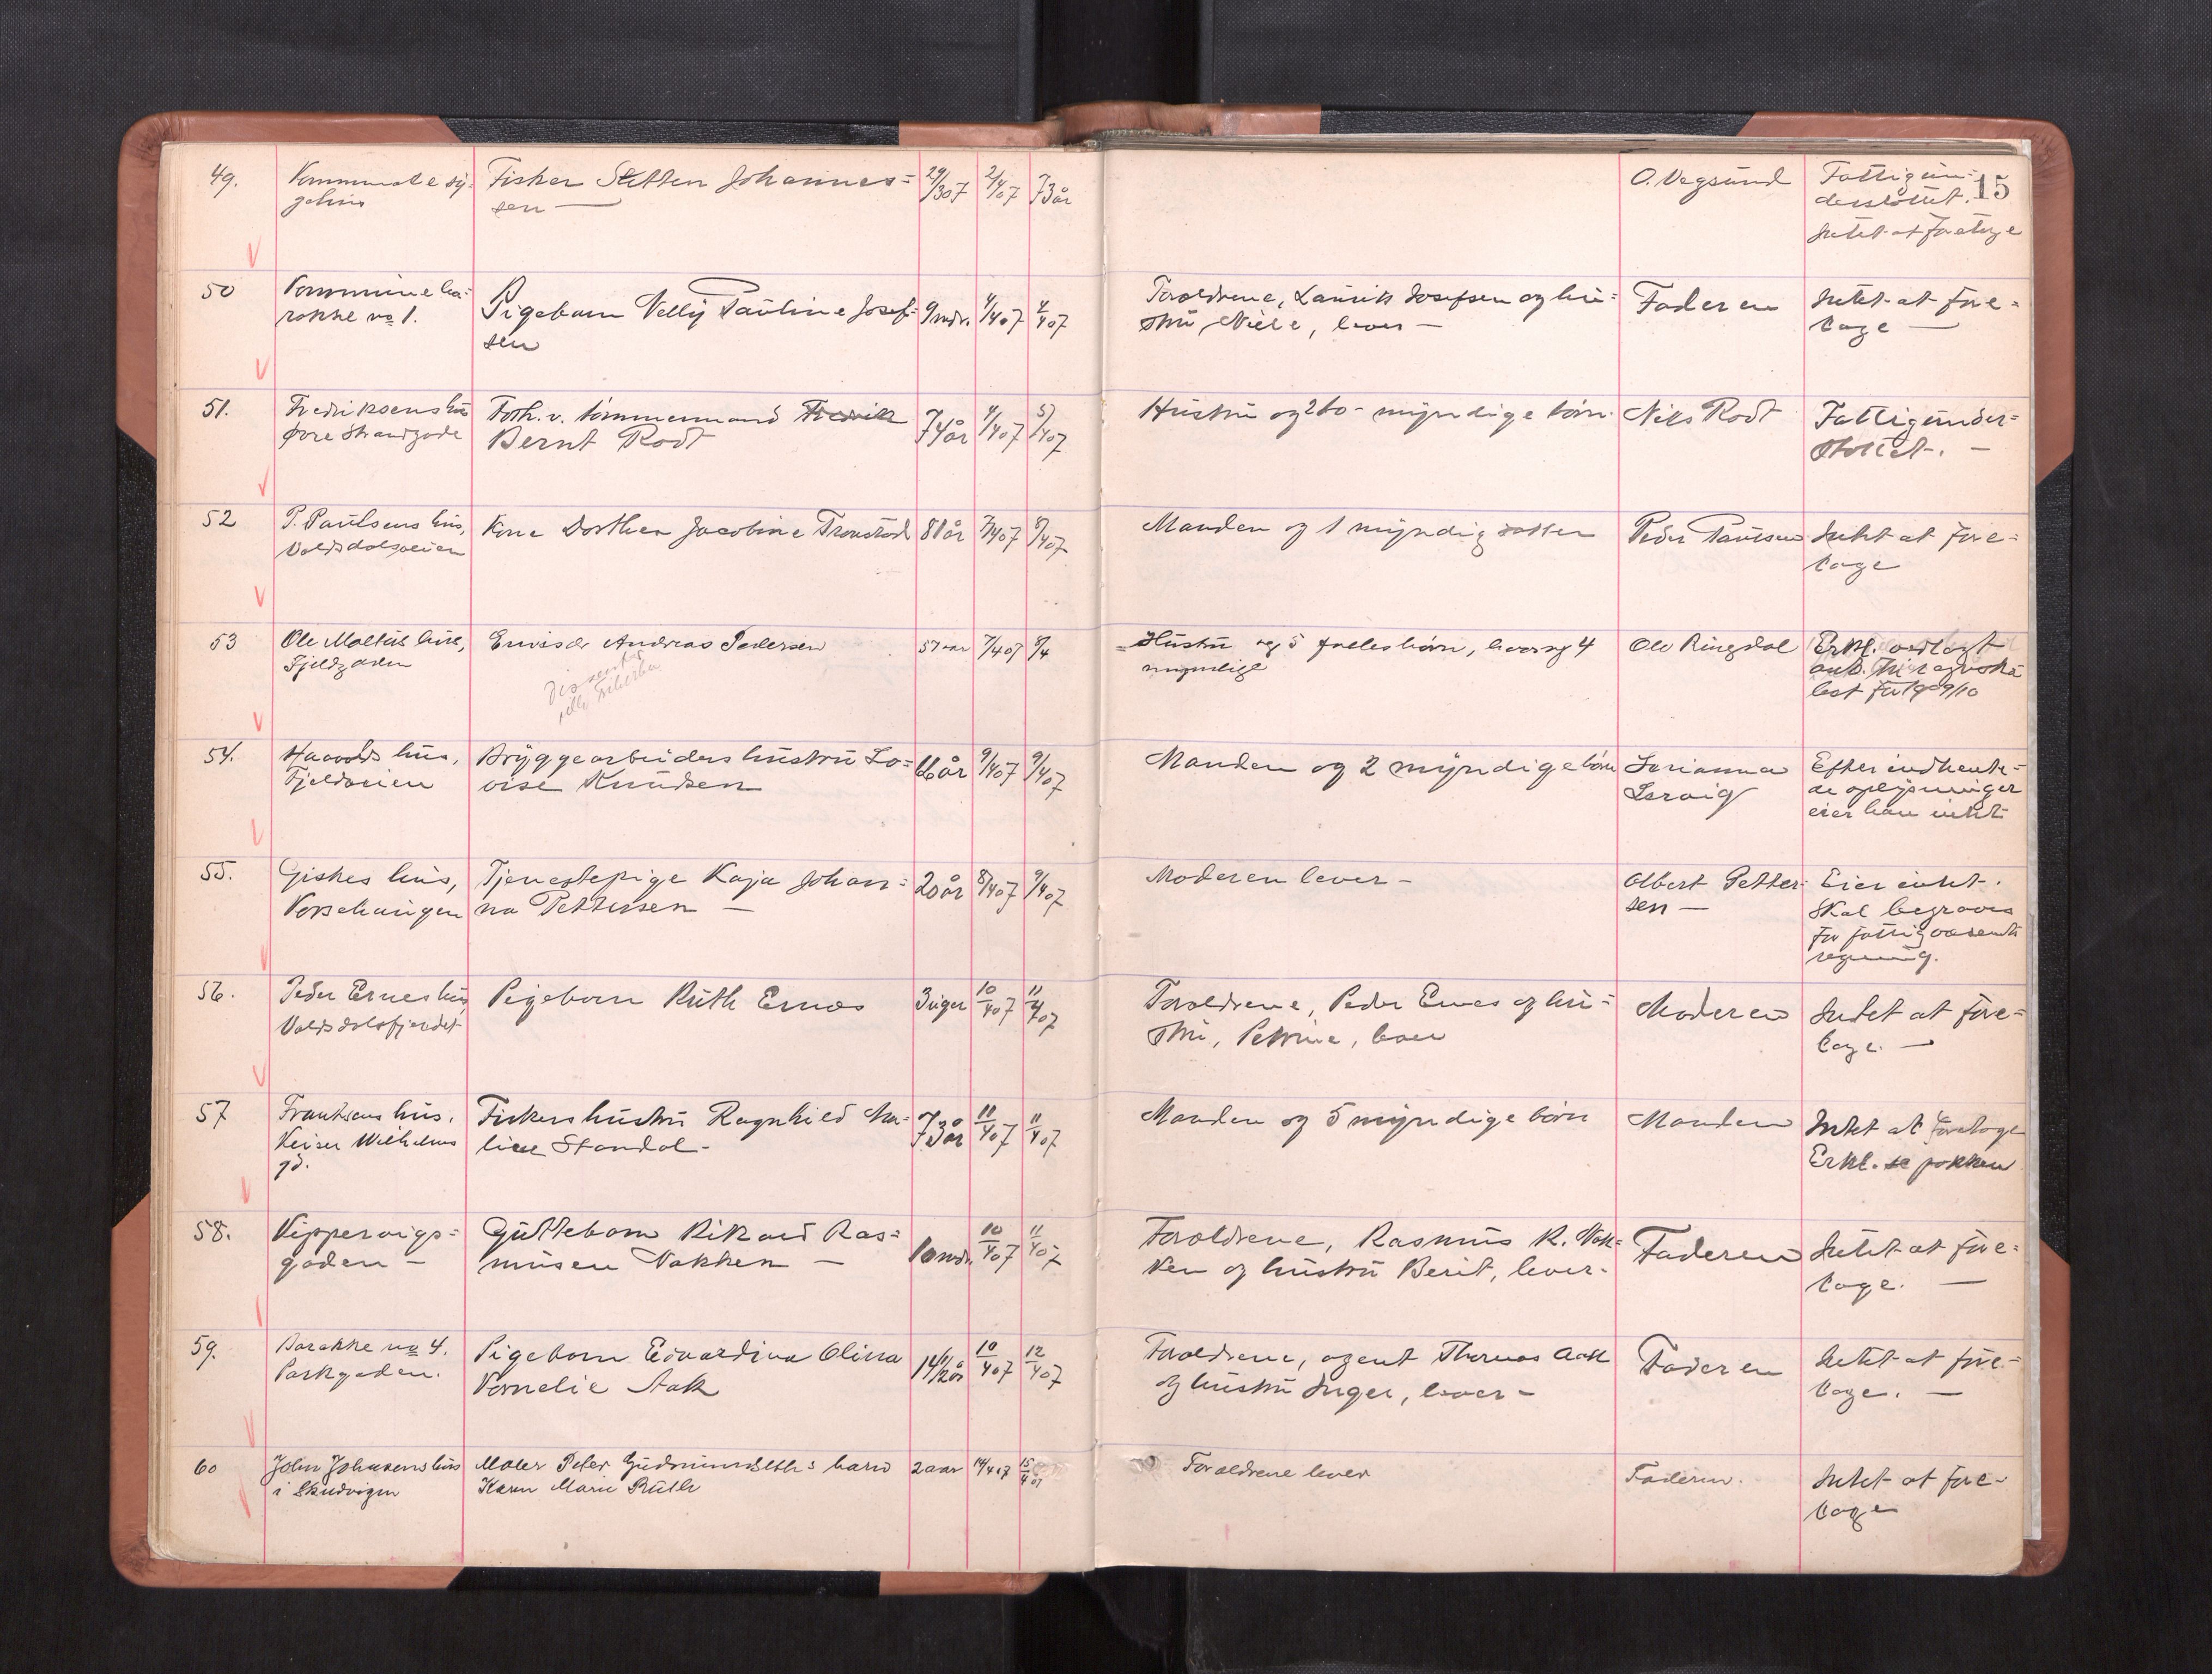 15
49. Kommunale sy-
gehus
Fisker Steffen Johannes=
sen —
29/3 07 2/4 07 73 år
O. Vegsund
Fattigun-
derstøttet.
Intet at foretage
50 Kommuneba-
rakke no 1.
Pigebarn Nelly Pauline Josef-
sen
9 mdr. 4/4 07 4/4 07
Forældrene, Laurik Josefsen og hu-
stru, lever —
Faderen
Intet at fore=
tage —
51. Fredriksens hus
Øvre Strandgade
Forh. v. tømmermand Fredrik
Bernt Rodt
74 år 4/4 07 5/4 07
Hustru og 2 to- myndige børn.
Nils Rodt
Fattigunder=
støttet. —
52 P. Paulsens hus,
Voldsdalsveien
Kone Dorthea Jacobine Tronstad
81 år 7/4 07 8/4 07
Manden og 1 myndig datter
Peder Paulsen
Intet at fore=
tage
53 Ole Moltus hus,
Fjeldgaden
Andreas Pedersen
Dissenter
57 aar 7/4 07 8/4
Hustru og 5 fælles børn, hvorav 4
myndige
Ole Ringdal
Erkl. vedlagt
54. Haavolds hus,
Fjeldveien
Bryggearbeiders hustru Lo=
vise Knudsen
66 år 9/4 07 9/4 07
Manden og 2 myndige børn
Serianna
Lervig
Efter indhente-
de oplysninger
eier han intet
55. Giskes hus,
Vorschaugen
Tjenestepige Kaja Johan=
na Pettersen —
20 år 8/4 07 9/4 07
Moderen lever —
Albert Petter-
sen —
Eier intet.
Skal begraves
for fattigvæsenets
regning.
56. Peder Ernes hus,
Voldsdalsfjeldet
Pigebarn Ruth Ernes
3 uger 10/4 07 11/4 07
Forældrene, Peder Ernes og hu=
stru, Petrine, lever
Moderen
Intet at fore=
tage. —
57 Frantzens hus.
Keiser Wilhelms
gd.
Fiskers hustru Ragnhild Ma-
line Standal -
73 år 11/4 07 11/4 07
Manden og 5 myndige børn
Manden
Intet at foretage
Erkl. se pakken
58. Kippervigs=
gaden —
Guttebarn Rikard Ras=
musen Nakken —
10 mdr. 10/4 07 11/4 07
Forældrene, Rasmus R. Nak=
ken og hustru Berit, lever.
Faderen
Intet at fore=
tage. —
59. Barakke no 4.
Parkgaden.
Pigebarn Edvardina Olina
Kornelie Aak
14 1/2 år 10/4 07 12/4 07
Forældrene, agent Thomas Aak
og hustru Inger, lever —
Faderen
Intet at fore=
tage. —
60 John Johnsens hus
i Skudvigen
Maler Peter Gudmundseths barn
Karen Marie Ruth
2 aar 14/4 07 15/4 07
Forældrene lever
Faderen.
Intet at fore-
tage